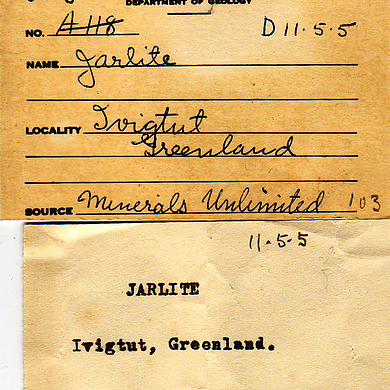 DEPARTMENT OF GEOLOGY
NO. A 118 D 11.5.5
NAME Jarlite
LOCALITY Ivigtut
Greenland
SOURCE Minerals Unlimited 103
11.5.5
JARLITE
Ivigtut, Greenland.